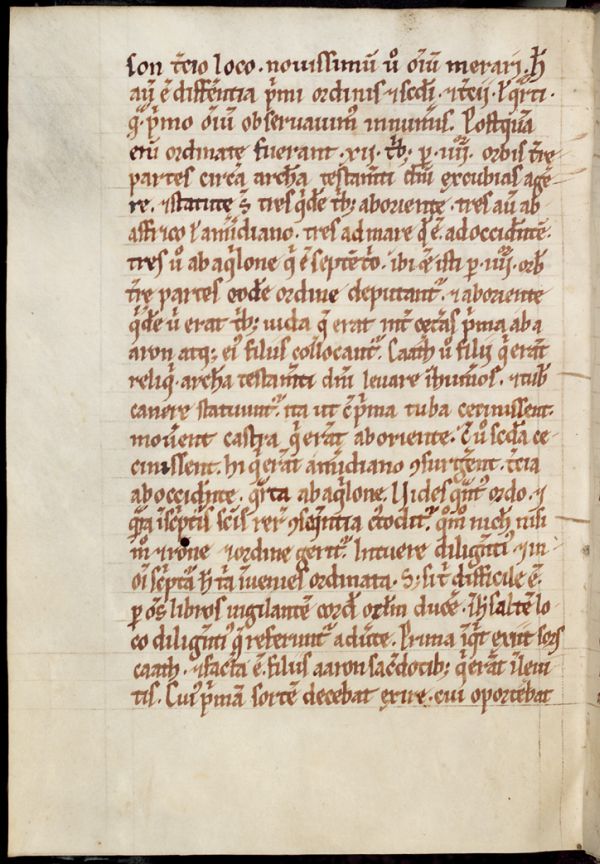 son t̄cio loco · nouissimū ů om̄iū merarj · h̄
aū ē diff̄entia p̄mi ordinis ⁊ scd̄i · ⁊ t̄cii · ł q̄rti ·
q̄ · p̄mo om̄iū obseruauim᷒ in numis · Postquā
enī ordinate fuerant · xij · tb̄ · p · iiij · orbis t̄re
partes circa archā testam̄ti dn̄i excubias age
re · ⁊ statute s̄ tres q̄de tb̄; aboriente · tres aū ab
affrico ł am̄idiano · tres ad mare q̄ ē · ad occid̄nte ·
tres ů ab aq̄lone q̄ ē septēt̄o · ibi q̄ isti p · iiij · orb̄
t̄re partes eodē ordine deputant᷑ · ⁊ aboriente
q̄de ů erat tb̄; iuda q̄ erat int̄ cet̄as p̄ma ab a
aron atq; ei᷒ filiis collocant᷑ · Caath ů filij q̄ erāt
reliq̄ · archā testam̄ti dn̄i leuare ī hum̄os · ⁊ tub̄
canere statuunt᷑ · ita ut c̄ p̄ma tuba cecinissent ·
mou̅ent castra q̄ erāt aboriente · C̄ ů scd̄a ce
cinissent · hi q̄ erāt am̄idiano ꝯsurger̄ent · t̄cia
ab occid̄nte · q̄rta ab aq̄lone · Uides q̄nt᷒ ordo · ⁊
q̄nta ī sc̄ptis sc̄is rer̄ ꝯseq̄ntia c̄todit᷑ · q̄m̊ nich̄ nisi
īm̊ ⁊ rōne ⁊ ordine gerit᷑ · Intuere diligent̄i᷒ ⁊ in
om̄i sc̄ptā h̄ īta inuenies ordinata · S; sit᷑ difficile ē ·
p om̄s libros uigilantē cord̄ ocłm ducē · Ih̄ saltē lo
co diligenti᷒ q̄ referunt᷑ aduerte · Prima iq̄t exiit sors
caath · ⁊ facta ē · filiis aaron sac̄dotib; q̄ erāt ī leui
tis · Cui᷒ p̄mā sortē decebat exire · cui oportebat